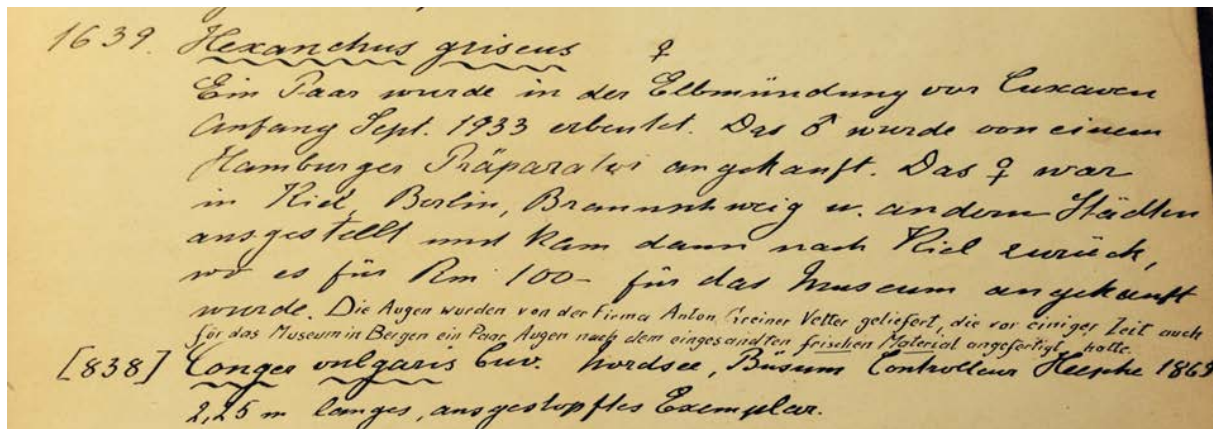 1639. Hexanchus griseus ♀
Ein Paar wurde in der Elbmündung vor Cuxaven
Anfang Sept. 1933 erbeutet. Das ♂ wurde von einem
Hamburger Präparator angekauft. Das ♀ war
in Kiel, Berlin, Braunschweig u. andern Städten
ausgestellt und kam dann nach Kiel zurück,
wo es für Rm 100- für das Museum angekauft
wurde. Die Augen wurden von der Firma Anton Greiner Vetter geliefert, die vor einiger Zeit auch
für das Museum in Bergen ein Paar Augen nach dem eingesandten frischen Material angefertigt hatte.
[838] Conger vulgaris Cuv. Nordsee, Büsum Controlleur 186
2,25 m langes, ausgestopftes Exemplar.